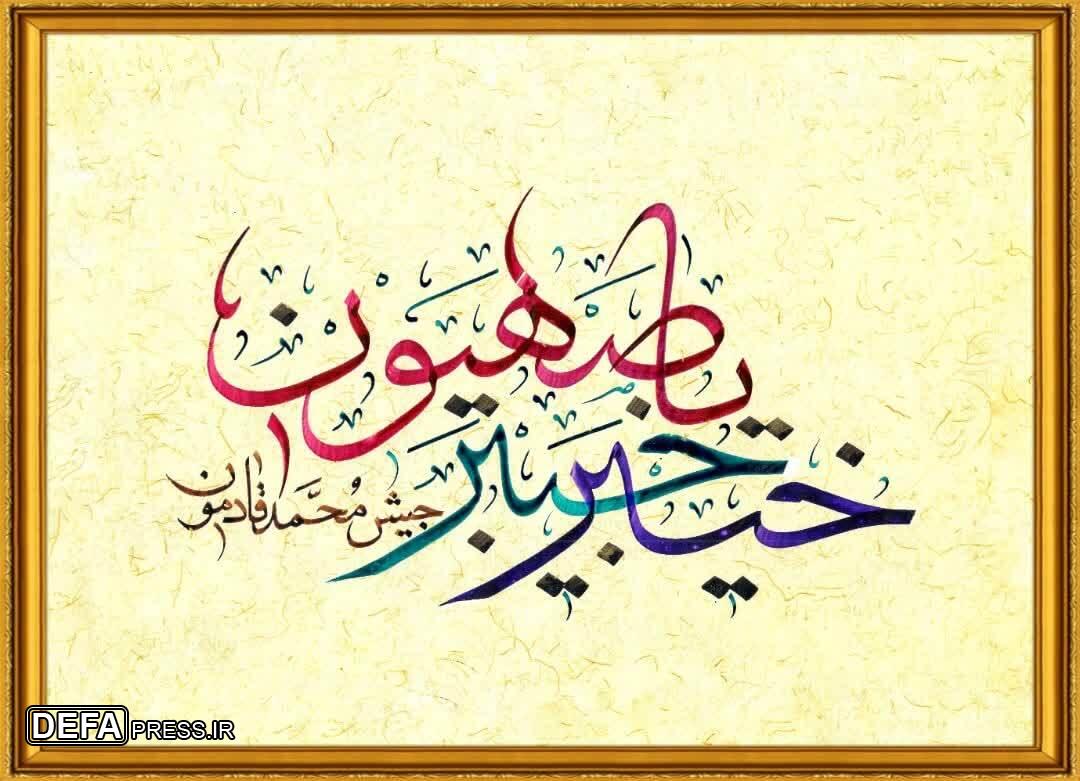 خيبر خيبر
يا صهيون
جيش مُحمَّد قادمون
DEFAPRESS.IR